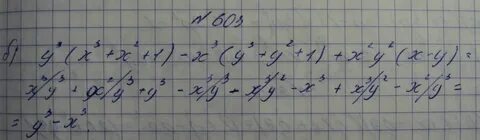 № 603
б) y³(x³+x²+1)-x³(y³+y²+1)+x²y²(x-y)=
x³y³+x²y³+y³-x³y³-x³y²-x³+x³y²-x²y³=
= y³-x³.